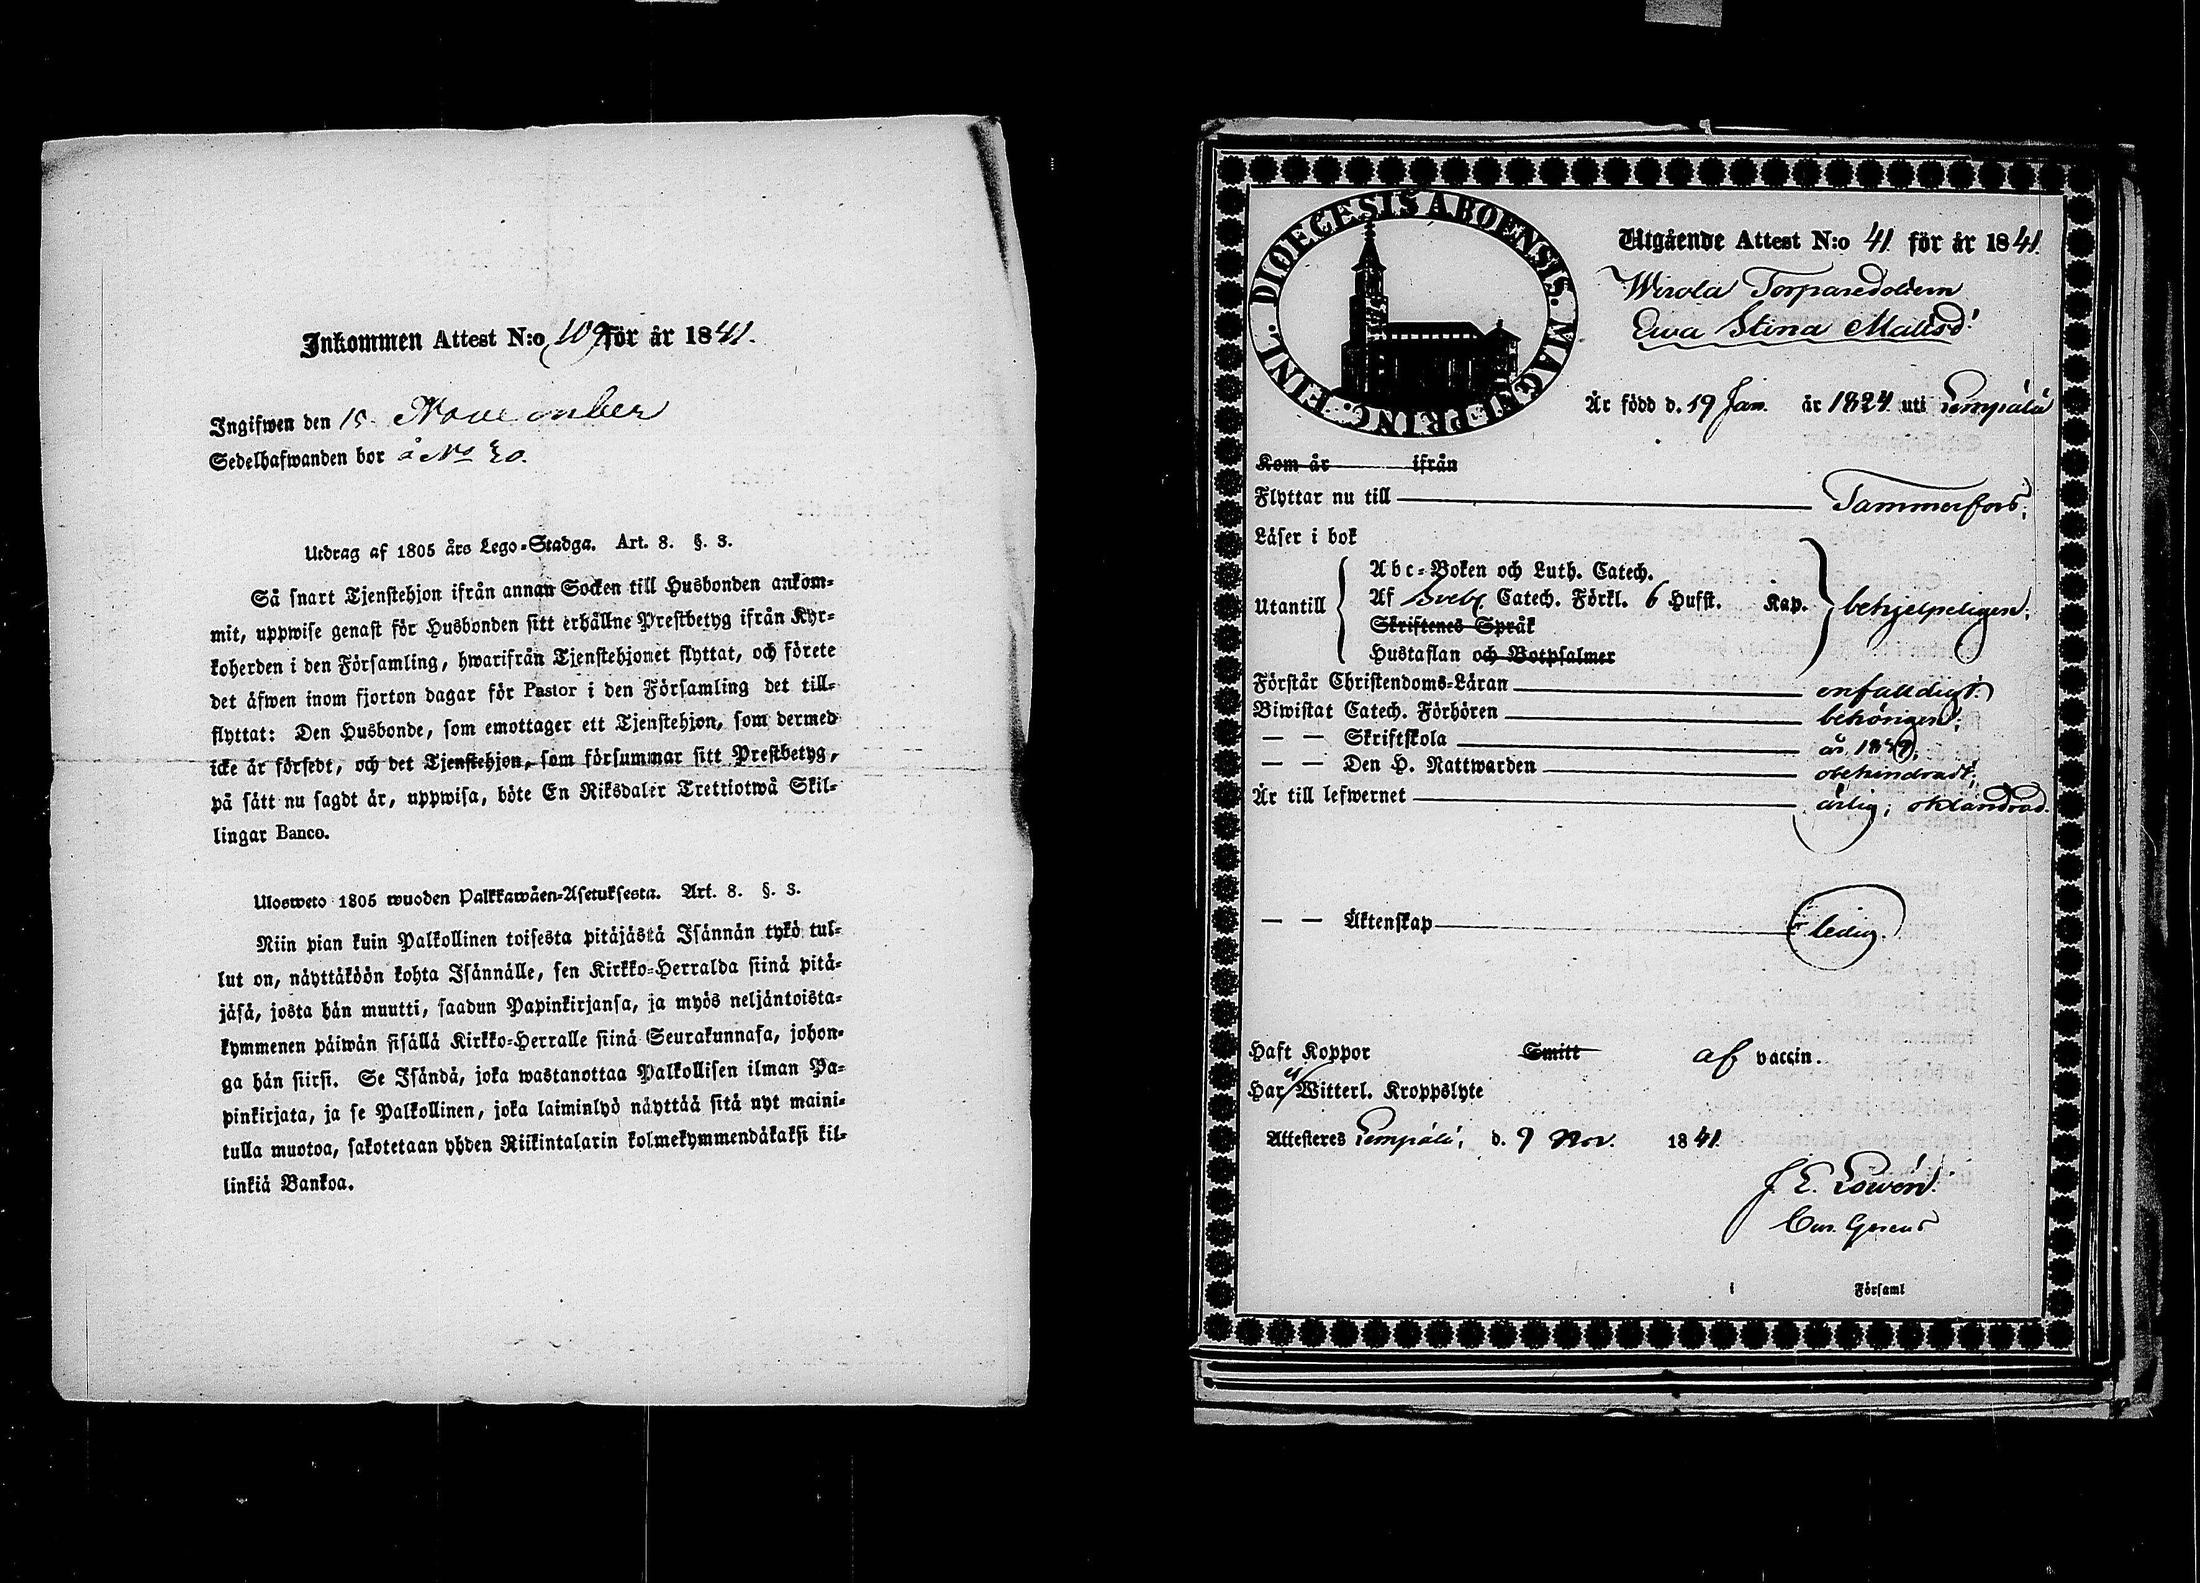 Inkommen Attest N:o 109 för år 1841.
Ingifwen den 15 November
Sedelhafwanden bor å No 20.
Utdrag af 1805 års Lego-Stadga. Art. 8. §. 3.
Så snart Tjenstehjon ifrån annan Socken till Husbonden ankom-
mit, uppwise genast för Husbonden sitt erhållne Prestbetyg ifrån Kyr-
koherden i den Församling, hwarifrån Tjenstehjonet flyttat, och förete
det äfwen inom fjorton dagar för Pastor i den Församling det till-
flyttat: Den Husbonde, som emottager ett Tjenstehjon, som dermed
icke är försedt, och det Tjenstehjon, som försummar sitt Prestbetyg,
på sätt nu sagdt är, uppwisa, böte En Riksdaler Trettiotwå Skil-
lingar Banco.
Ulosweto 1805 wuoden Palkkawäen-Asetuksesta. Art. 8. §. 3.
Niin pian kuin Palkollinen toisesta pitäjästä Isännän tykö tul-
lut on, näyttäköön kohta Isännälle, sen Kirkko-Herralda siinä pitä-
jäsä, josta hän muutti, saadun Papinkirjansa, ja myös neljäntoista-
kymmenen päiwän sisällä Kirkko-Herralle siinä Seurakunnasa, johon-
ga hän siirsi. Se Isändä, joka wastanottaa Palkollisen ilman Pa-
pinkirjata, ja se Palkollinen, joka laiminlyö näyttää sitä nyt maini-
tulla muotoa, sakotetaan yhden Riikintalarin kolmekymmendäkaksi kil-
linkiä Bankoa.
DIOECESIS ABOENSIS. MAGNI PRINC. FINL.
Utgående Attest N:o 41 för år 1841.
Wirola Torparedottern
Ewa Stina Matsd:
Är född d. 19 Jan. år 1824 uti Lempälä
Kom år ifrån
Flyttar nu till Tammerfors;
Läser i bok
Utantill
Abc-Boken och Luth. Catech.
Af Sveb. Catech. Förkl. 6 Hufst. Kap. behjelpeligen;
Skriftenes Språk
Hustaflan och Botpsalmer
Förstår Christendoms-Läran enfaldigt;
Biwistat Catech. Förhören behörigen;
— — Skriftskola år 1839;
— — Den H. Nattwarden obehindradt;
Är till lefwernet ärlig; oklandrad.
— — Äktenskap ledig.
Haft Koppor Smitt af vaccin.
Har ej Witterl. Kroppslyte
Attesteres Lempälä, d. 9 Nov. 1841.
J. E. Lowén.
Cur. Gerens
i Församl